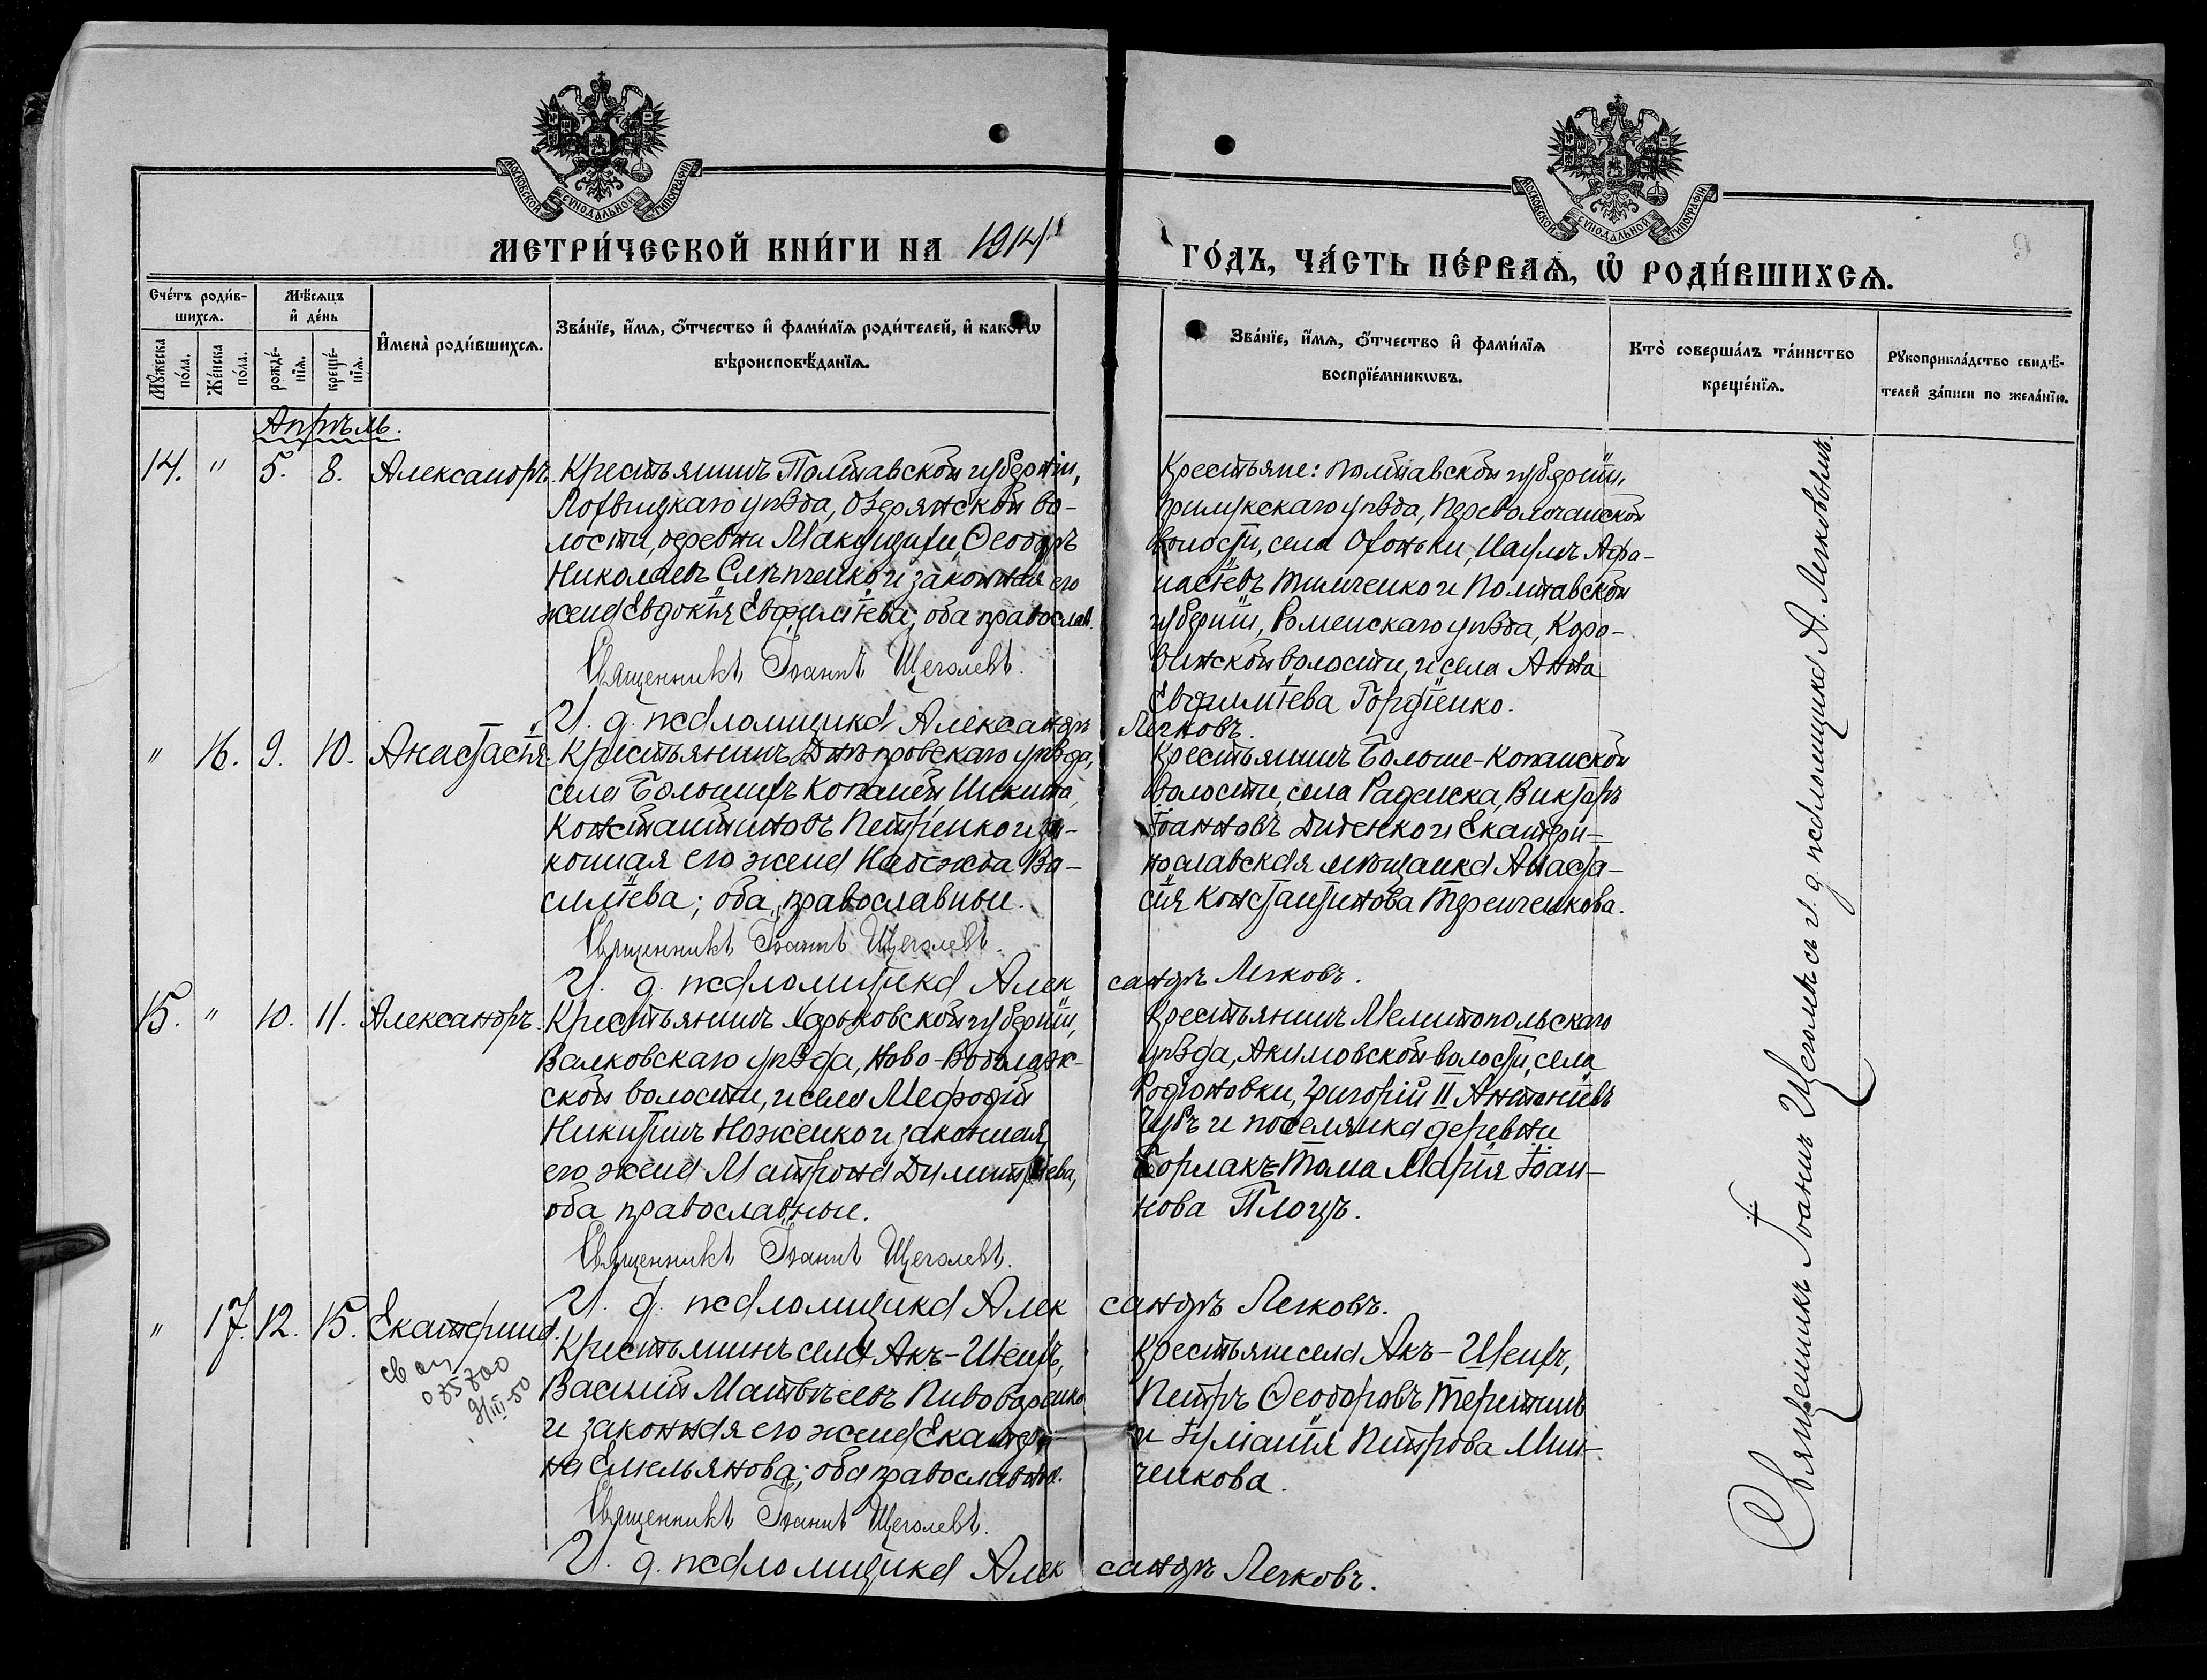 МОСКОВСКОЙ СѴНОДАЛЬНОЙ ТИПОГРАФІИ
МОСКОВСКОЙ СѴНОДАЛЬНОЙ ТИПОГРАФІИ
МЕТРИ́ЧЕСКОЙ КНИ́ГИ НА 1914
ГО́ДЪ, ЧА́СТЬ ПЕ́РВАѦ, Ѡ҆ РОДИ́ВШИХСѦ.
Сче́тъ роди́в-
шихсѧ.
Мѣ́сѧцъ
и҆ де́нь
Мꙋ́жеска
по́ла.
Же́нска
по́ла.
рожде́-
нїѧ.
креще́-
нїѧ.
И҆мена̀ роди́вшихсѧ.
Зва́нїе, и҆́мѧ, ѻ҆́тчество и҆ фами́лїѧ роди́телей, и҆ како́гѡ
вѣроисповѣ́данїѧ.
Зва́нїе, и҆́мѧ, ѻ҆́тчество и҆ фами́лїѧ
воспрїе́мникѡвъ.
Кто̀ соверша́лъ та́инство
креще́нїѧ.
Рꙋкоприкла́дство свидѣ́-
телей за́писи по жела́нїю.
Апрѣль.
14. " 5. 8. Александръ.
Крестьянинъ Полтавской губерніи,
Лохвицкаго уѣзда, Озерянской во-
лости, деревни Макущихи, Ѳеодоръ
Николаевъ Слѣпченко и законная его
жена Евдокія Евфиміева; оба православ.
Священникъ Іоаннъ Щеголевъ.
И. д. псаломщика Александръ Легковъ.
Крестьяне: Полтавской губерніи,
Прилукскаго уѣзда, Переволочанской
волости, села Огоньки, Наумъ Афа-
насіевъ Тимченко и Полтавской
губерніи, Роменскаго уѣзда, Коро-
винской волости, и села Анна
Евфиміева Гордіенко.
" 16. 9. 10. Анастасія.
Крестьянинъ Днѣпровскаго уѣзда,
села Большихъ Копаней, Никита
Константиновъ Петренко и за-
конная его жена Надежда Ва-
силіева; оба православные.
Священникъ Іоаннъ Щеголевъ.
И. д. псаломщика Александръ Легковъ.
Крестьянинъ Больше-Копанской
волости, села Раденска, Викторъ
Іоанновъ Диденко и Екатери-
нославская мѣщанка Анаста-
сія Константинова Теренченкова.
15. " 10. 11. Александръ.
Крестьянинъ Харьковской губерніи,
Валковскаго уѣзда, Ново-Водолаж-
ской волости, и села Меѳодій
Никитинъ Ноженко и законная
его жена Матрона Димитріева,
оба православные.
Священникъ Іоаннъ Щеголевъ.
И. д. псаломщика Александръ Легковъ.
Крестьянинъ Мелитопольскаго
уѣзда, Акимовской волости, села
Родіоновки, Григорій II Антоніевъ
Чубъ и поселянка деревни
Борлакъ-Тама Марія Іоан-
нова Плоцъ.
" 17. 12. 15. Екатерина.
075700
9/III-50
Крестьянинъ села Акъ-Шеихъ,
Василій Матвѣевъ Пивоваренко
и законная его жена Екатери-
на Емельянова; оба православные.
Священникъ Іоаннъ Щеголевъ.
И. д. псаломщика Александръ Легковъ.
Крестьяне села Акъ-Шеихъ,
Петръ Ѳеодоровъ Терентьевъ
и Іуліанія Петрова Мин-
ченкова.
Священникъ Іоаннъ Щеголевъ съ и. д. псаломщика А. Легковымъ.